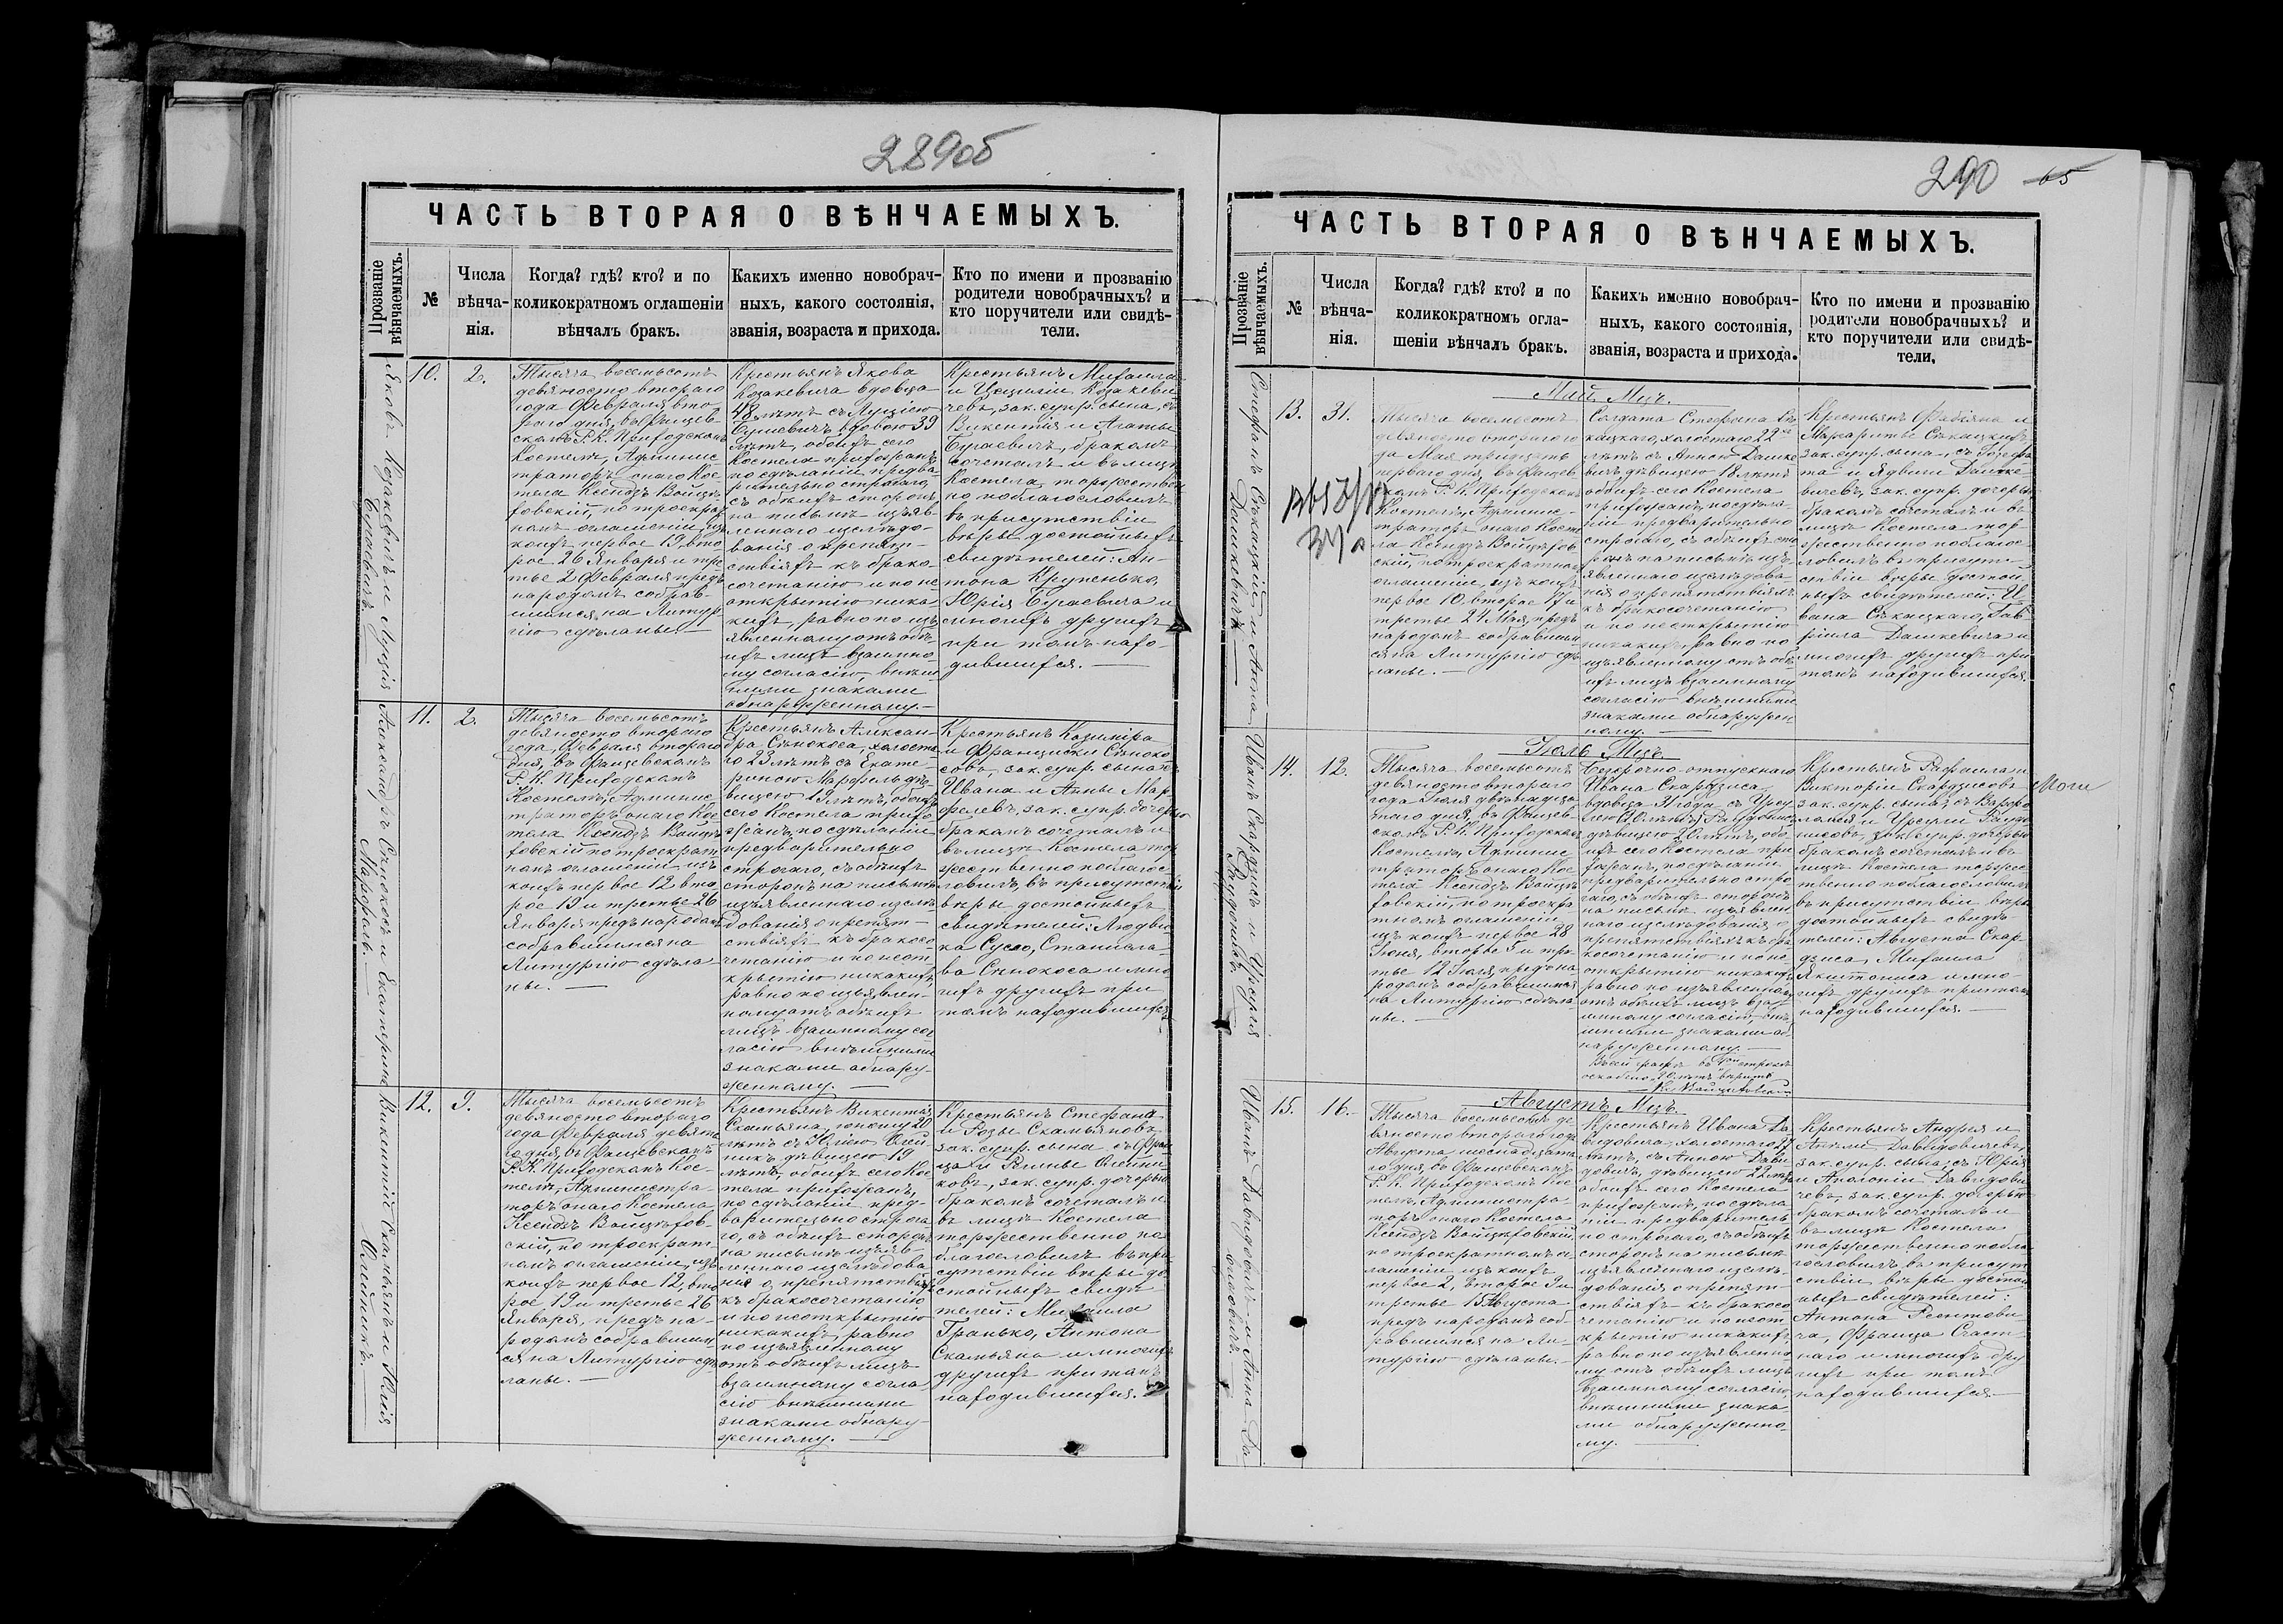 289об
ЧАСТЬ ВТОРАЯ О ВѢНЧАЕМЫХЪ.
Прозваніе
вѣнчаемыхъ.
№
Числа
вѣнча-
нія.
Когда? гдѣ? кто? и по
коликократномъ оглашеніи
вѣнчалъ бракъ.
Какихъ именно новобрач-
ныхъ, какого состоянія,
званія, возраста и прихода.
Кто по имени и прозванію
родители новобрачныхъ? и
кто поручители или свидѣ-
тели.
Яковъ Козакевичъ и Луція
Бугаевичъ.
10.
2.
Тысяча восемьсотъ
девяносто второго
года Февраля вто
рого дня, въ Фащев-
скомъ Р. К. Приходскомъ
Костелѣ, Админис
траторъ онаго Кос-
тела Ксендзъ Войцѣ
ховскій, по троекрат
номъ оглашеніи, изъ
коихъ первое 19, вто
рое 26 Января и тре
тье 2 Февраля предъ
народомъ собрав-
шимся на Литур
гію сдѣланы. —
Крестьянъ Якова
Козакевича вдовца
48 лѣтъ съ Луціею
Бугаевичъ вдовою 39
лѣтъ, обоихъ сего
Костела прихожанъ,
по сдѣланіи предва
рительно строгаго,
съ обоихъ сторонъ
на письмѣ изъяв-
леннаго изслѣдо-
ванія о препят-
ствіяхъ къ брако
сочетанію и по не
открытію ника-
кихъ, равно по изъ
явленному отъ обѣ
ихъ лицъ взаимно-
му согласію, внѣш
ними знаками
обнаруженному. —
Крестьянъ Михаила
и Цециліи Козакеви
чевъ, зак. супр. сына, съ
Викентія и Агаты
Бугаевичъ, бракомъ
сочеталъ и въ лицѣ
Костела торжествен
но поблагословилъ
въ присутствіи
вѣры достойныхъ
свидѣтелей: Ан-
тона Крупенько,
Юрія Бугаевича и
многихъ другихъ
при томъ нахо-
дившихся. —
Александръ Сѣнокосъ и Екатерина
Марфель. —
11.
2.
Тысяча восемьсотъ
девяносто второго
года, Февраля второго
дня, въ Фащевскомъ
Р. К. Приходскомъ
Костелѣ, Админис
траторъ онаго Кос-
тела Ксендзъ Войцѣ
ховскій по троекрат
номъ оглашеніи изъ
коихъ первое 12 вто
рое 19 и третье 26
Января предъ народомъ
собравшимся на
Литургію сдѣла
ны. —
Крестьянъ Алексан-
дра Сѣнокоса, холоста
го 23 лѣтъ съ Екате-
риною Марфель дѣ-
вицею 19 лѣтъ, обоихъ
сего Костела прихо
жанъ, по сдѣланіи
предварительно
строгаго, съ обоихъ
сторонъ на письмѣ
изъявленнаго изслѣ
дованія о препят-
ствіяхъ къ бракосо
четанію и по неот-
крытію никакихъ,
равно по изъявлен-
ному отъ обѣихъ
лицъ взаимному сог
ласію внѣшними
знаками обнару
женному. —
Крестьянъ Казиміра
и Францишки Сѣноко
совъ, зак. супр. сына съ
Ивана и Анны Мар
фелевъ, зак. супр. дочерью
бракомъ сочеталъ и
въ лицѣ Костела тор
жественно поблагос
ловилъ, въ присутствіи
вѣры достойныхъ
свидѣтелей: Людви
ка Сусло, Станисла-
ва Сѣнокоса и мно
гихъ другихъ при
томъ находившихся.
Викентій Скамьянъ и Юлія
Олейникъ. —
12.
9.
Тысяча восемьсотъ
девяносто второго
года Февраля девята
го дня, въ Фащевскомъ
Р. К. Приходскомъ Кос-
телѣ, Администра-
торъ онаго Костела
Ксендзъ Войцѣхов-
скій, по троекрат-
номъ оглашеніи, изъ
коихъ первое 12, вто
рое 19 и третье 26
Января, предъ на-
родомъ собравшим
ся на Литургію сдѣ
ланы. —
Крестьянъ Викентія
Скамьяна, юношу 20
лѣтъ съ Юліею Олей
никъ дѣвицею 19
лѣтъ, обоихъ сего Кос
тела прихожанъ,
по сдѣланіи пред-
варительно строга
го, съ обоихъ сторонъ
на письмѣ изъяв-
леннаго изслѣдова
нія о препятствіяхъ
къ бракосочетанію
и по неоткрытію
никакихъ, равно
по изъявленному
отъ обѣихъ лицъ
взаимному согла
сію внѣшними
знаками обнару-
женному. —
Крестьянъ Стефана
и Розы Скамьяновъ
зак. супр. сына съ Фран
ца и Регины Олейни
ковъ, зак. супр. дочерью
бракомъ сочеталъ и
въ лицѣ Костела
торжественно по
благословилъ въ при
сутствіи вѣры до
стойныхъ свидѣ
телей: Михаила
Гранько, Антона
Скамьяна и многихъ
другихъ при томъ
находившихся.
290 65
ЧАСТЬ ВТОРАЯ О ВѢНЧАЕМЫХЪ.
Прозваніе
вѣнчаемыхъ.
№
Числа
вѣнча-
нія.
Когда? гдѣ? кто? и по
коликократномъ огла-
шеніи вѣнчалъ бракъ.
Какихъ именно новобрач-
ныхъ, какого состоянія,
званія, возраста и прихода.
Кто по имени и прозванію
родители новобрачныхъ? и
кто поручители или свидѣ-
тели.
Стефанъ Сѣкацкій и Анна
Дашкевичъ —
Май Мцъ.
13.
31.
Тысяча восемьсотъ
девяносто второго го
да Мая тридцать
перваго дня, въ Фащев
скомъ Р. К. Приходскомъ
Костелѣ, Админис-
траторъ онаго Косте
ла Ксендзъ Войцѣхов-
скій, по троекратномъ
оглашеніи, изъ коихъ
первое 10, второе 17 и
третье 24 Мая, предъ
народомъ собравшим
ся на Литургію сдѣ
ланы. —
Солдата Стефана Сѣ
кацкаго, холостаго 22
лѣтъ съ Анною Дашке
вичъ дѣвицею 18 лѣтъ
обоихъ сего Костела
прихожанъ, по сдѣла
ніи предварительно
строгаго, съ обоихъ сто
ронъ на письмѣ изъ
явленнаго изслѣдова
нія о препятствіяхъ
къ бракосочетанію
и по неоткрытію
никакихъ, равно по
изъявленному отъ обѣ
ихъ лицъ взаимному
согласію внѣшними
знаками обнаружен
ному. —
Крестьянъ Фабіяна и
Маргариты Сѣкацкихъ,
зак. супр. сына, съ Іозефа
та и Ядвиги Дашке
вичевъ, зак. супр. дочерью
бракомъ сочеталъ и въ
лицѣ Костела тор
жественно поблагос
ловилъ въ присут-
ствіи вѣры достой
ныхъ свидѣтелей: И-
вана Сѣкацкаго, Гав-
ріила Дашкевича и
многихъ другихъ при
томъ находившихся.
Иванъ Скардзисъ и Урсулія
Раудонисъ. —
Іюль Мцъ.
14.
12.
Тысяча восемьсотъ
девяносто второго
года Іюля двѣнадца
таго дня, въ Фащев-
скомъ Р. К. Приходскомъ
Костелѣ, Админис
траторъ онаго Кос
тела Ксендзъ Войцѣ
ховскій, по троекра
тномъ оглашеніи,
изъ коихъ первое 28
Іюня, второе 5 и тре-
тье 12 Іюля, предъ на-
родомъ собравшимся
на Литургію сдѣла
ны. —
Безсрочно-отпускнаго
Ивана Скардзиса
вдовца 31 года, съ Урсу
дѣвицею 20 лѣтъ, обо-
ихъ сего Костела при
хожанъ, по сдѣланіи
предварительно стро-
гаго, съ обоихъ сторонъ
на письмѣ изъявлен-
наго изслѣдованія о
препятствіяхъ къ бра
косочетанію и по не
открытію никакихъ,
равно по изъявленному
отъ обѣихъ лицъ вза-
имному согласію, внѣ
шними знаками об
наруженному. —
Крестьянъ Рафаила и
Викторіи Скардзисовъ
зак. супр. сына, съ Варфо
ломея и Урсули Раудо
нисовъ, зак. супр. дочерью
бракомъ сочеталъ и въ
лицѣ Костела торжес
твенно поблагословилъ
въ присутствіи вѣры
достойныхъ свидѣ-
телей: Августа Скар-
дзиса, Михаила
гихъ другихъ при томъ
находившихся. —
Иванъ Давидовичъ и Анна Да-
видовичъ. —
Августъ Мцъ.
15.
16. —
Тысяча восемьсотъ де-
вяносто второго года
Августа шестнадцата
го дня, въ Фащевскомъ
Р. К. Приходскомъ Кос
телѣ, Администра
торъ онаго Костела
Ксендзъ Войцѣховскій,
по троекратномъ ог-
лашеніи изъ коихъ
первое 2, второе 9 и
третье 15 Августа
предъ народомъ соб-
равшимся на Ли-
тургію сдѣланы. —
Крестьянъ Ивана Да
видовича, холостаго 27
лѣтъ, съ Анною Дави-
довичъ, дѣвицею 22 лѣтъ
обоихъ сего Костела
прихожанъ, по сдѣла
ніи предваритель
но строгаго, съ обоихъ
сторонъ на письмѣ
изъявленнаго изслѣ-
дованія о препят-
ствіяхъ къ бракосо
четанію и по неот
крытію никакихъ,
равно по изъявленно
му отъ обѣихъ лицъ
взаимному согласію
внѣшними знака-
ми обнаруженно-
му. —
Крестьянъ Андрея и
Анели Давидовичевъ,
зак. супр. сына, съ Юрія
и Аполоніи Давидови
чевъ, зак. супр. дочерью
бракомъ сочеталъ и
въ лицѣ Костела
торжественно побла
гословилъ въ присут
ствіи вѣры достой
ныхъ свидѣтелей:
Антона Рентови-
ча, Франца Счаст-
наго и многихъ дру
гихъ при томъ
находившихся. —